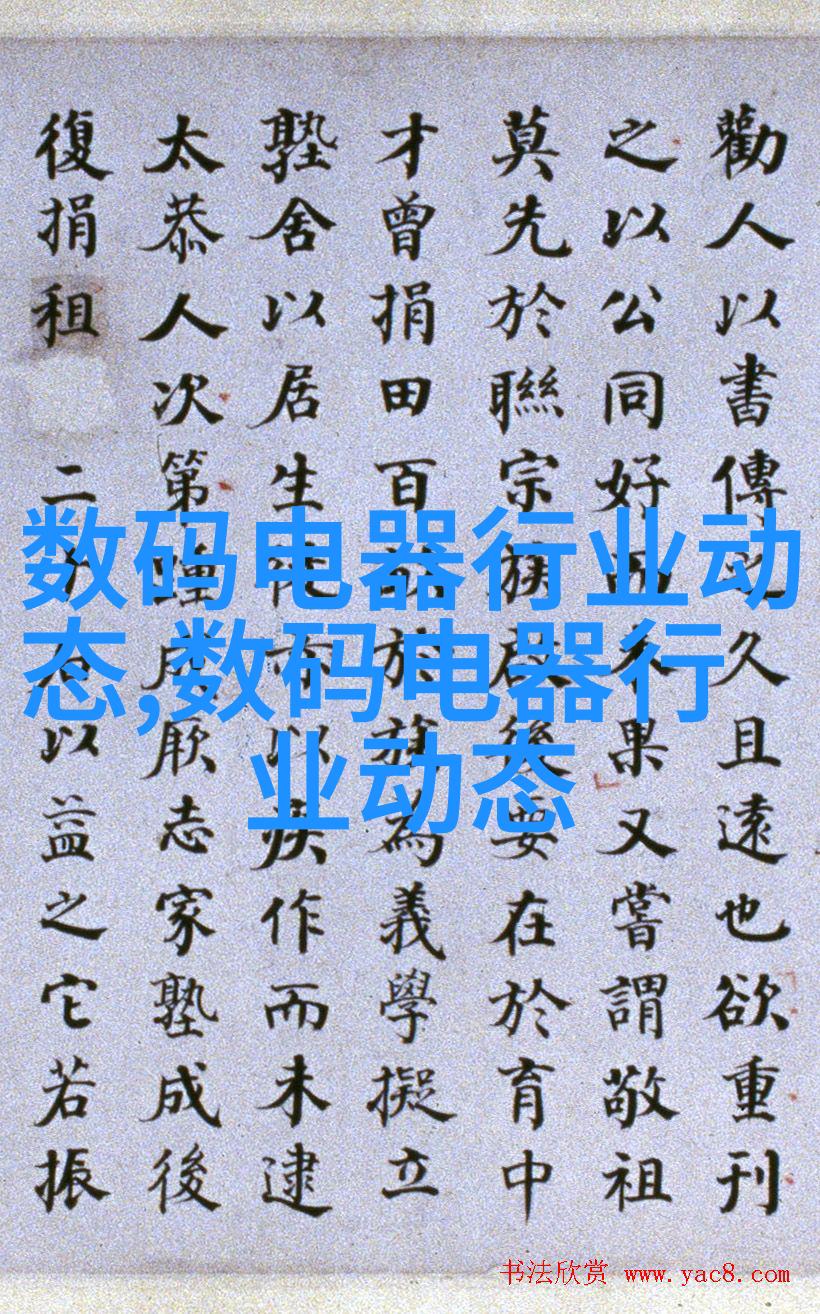 勸人以書傳之久且遠也欲重刊
之以公同好而未果又嘗謂敬祖
莫先於聯宗族啟後要在於育中
才曾捐田百畝於族為義學擬立
塾舍以居生徒而以疾作而未逮
太恭人次第踵成厥志家塾成後
復捐租二十石以益之它若振
数码电器行业动
态,数码电器行
业动态
书法欣赏 www.yac8.com